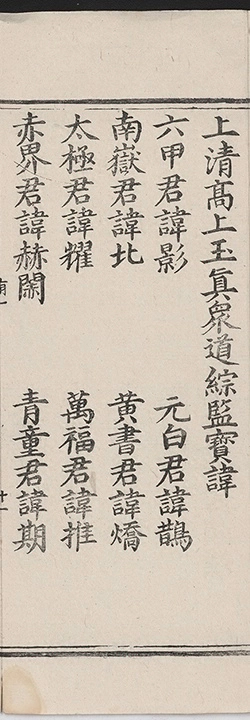 上清高上玉真眾道綜監寶諱
六甲君諱影　元白君諱鵲
南嶽君諱北　黃書君諱燆
太極君諱耀　萬福君諱推
赤界君諱赫闟　青童君諱期